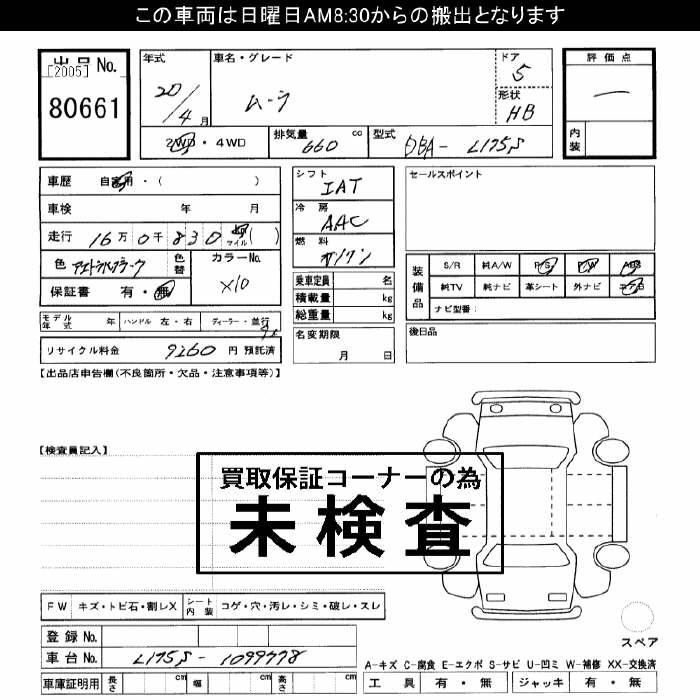 この車両は日曜日AM8:30からの搬出となります
出品No.
[2005]
80661
年式
20/4月
車名・グレード
ムーヴ
ドア
5
形状
HB
評価点
内装
2WD・4WD
排気量
660 cc
型式
DBA- L175S
車歴 自家用・( )
車検 年 月
走行 16万0千830 マイル ( )
色
色替
カラーNo.
X10
保証書 有・無
シフト
IAT
冷房
AAC
燃料
ガソリン
乗車定員 名
積載量 kg
総重量 kg
名変期限
月 日
セールスポイント
装備品
S/R 純A/W P/S P/W ABS
純TV 純ナビ 革シート 外ナビ エアB
ナビ型番:
後日品
モデル年式 年 ハンドル 左・右 ディーラー・並行
リサイクル料金 9260 円 預託済
【出品店申告欄(不良箇所・欠品・注意事項等)】
【検査員記入】
買取保証コーナーの為
未検査
FW キズ・トビ石・割レX シート内装 コゲ・穴・汚レ・シミ・破レ・スレ
登録No.
車台No. L175S-1099778
車庫証明用 長さ cm 幅 cm 高さ cm
スペア
A-キズ C-腐食 E-エクボ S-サビ U-凹ミ W-補修 XX-交換済
工具 有・無 ジャッキ 有・無